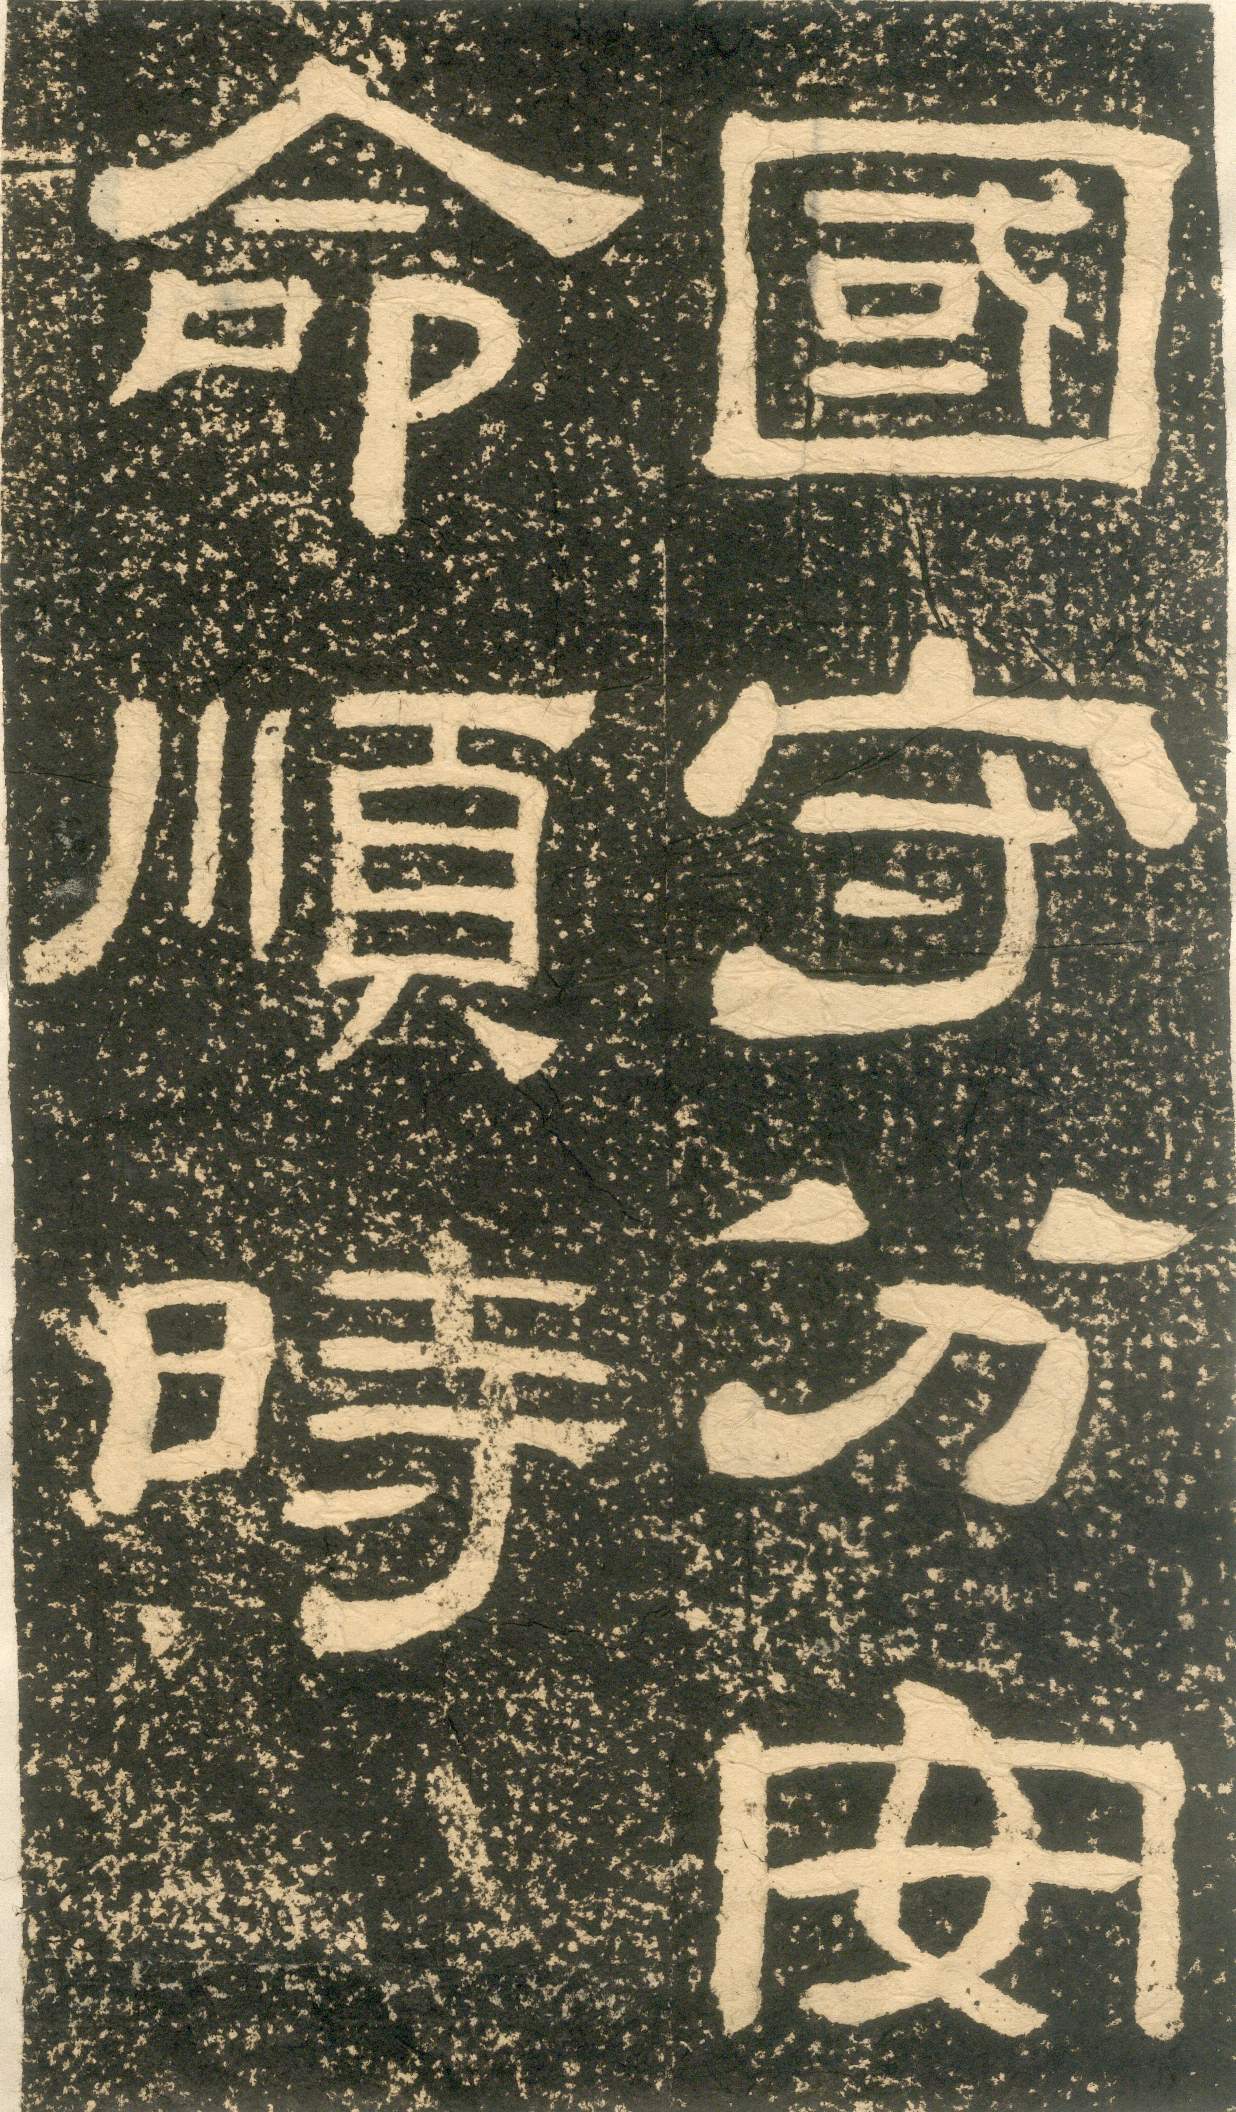 國守分安
命順時